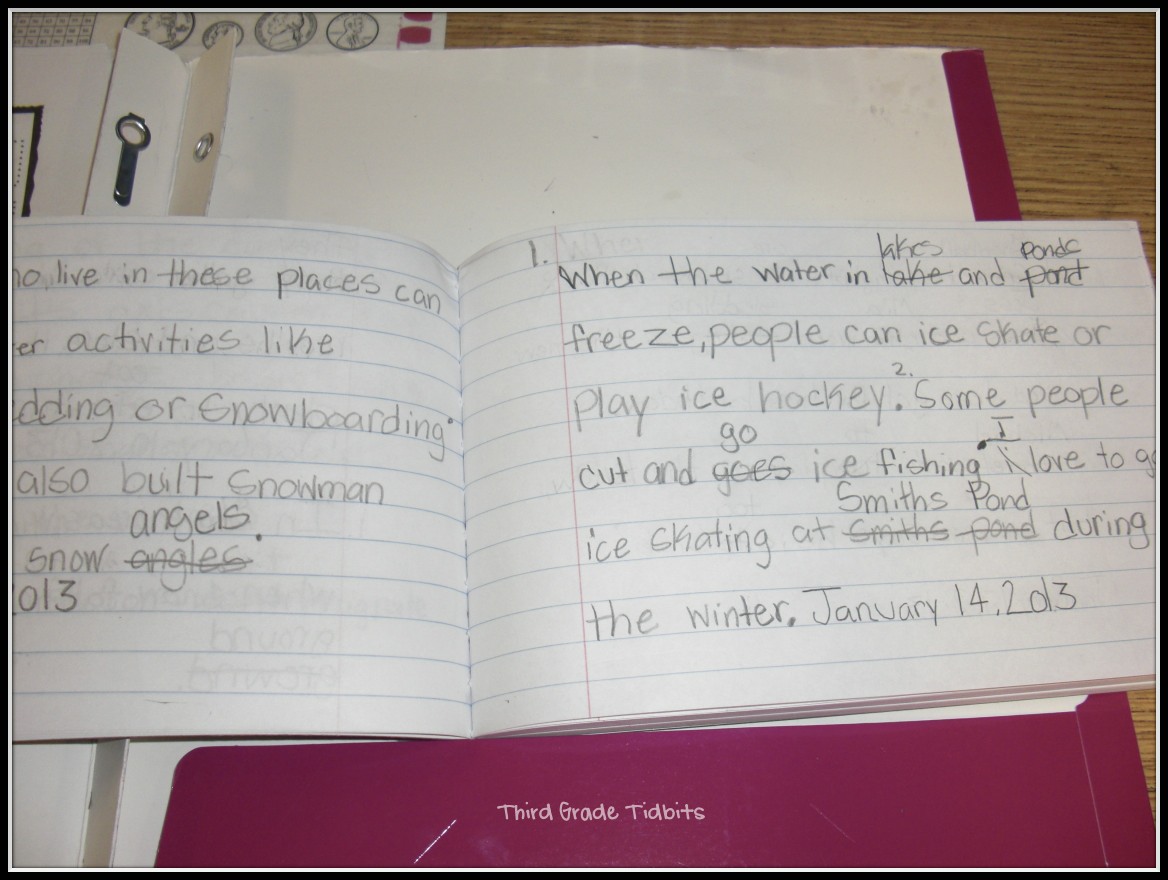 live in these places can
activities like
or Snowboarding.
also built Snowman
angels.
snow angles
2013
1.
lakes ponds
When the water in lake and pond
freeze, people can ice skate or
2.
play ice hockey. Some people
go I
cut and goes ice fishing. i love to go
Smiths Pond
ice skating at smiths pond during
the winter. January 14, 2013
Third Grade Tidbits